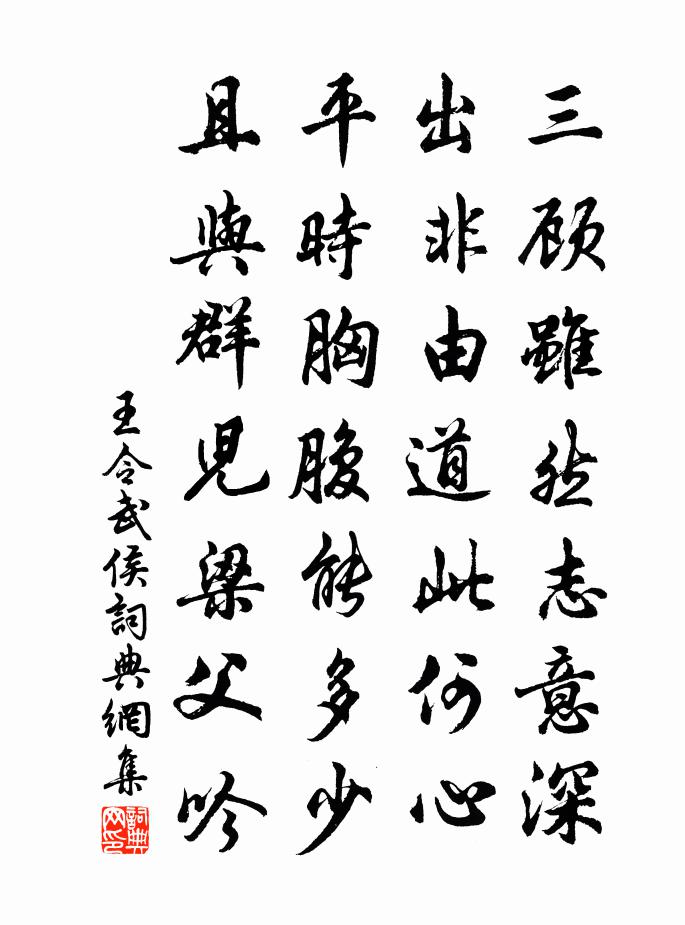 三顾雖然志意深
出非由道此何心
平時胸腹能多少
且與群児梁父吟
王令武侯詞典網集
詞典网印